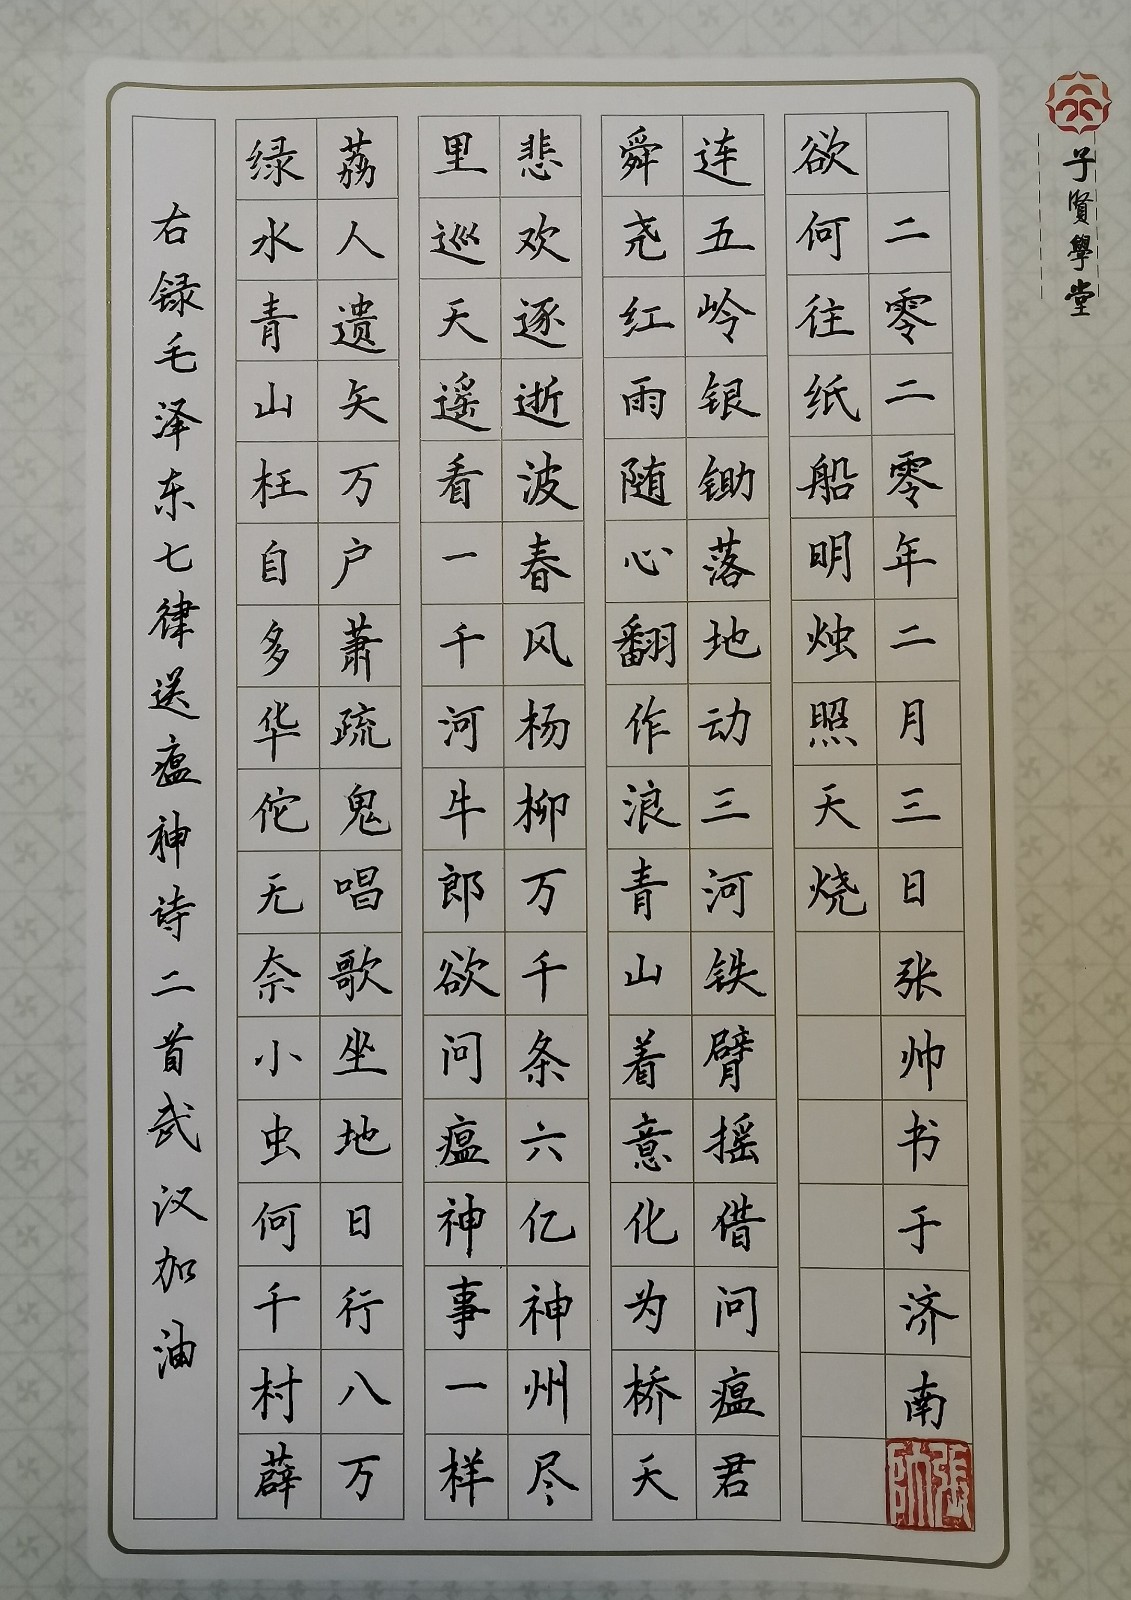 右录毛泽东七律送瘟神诗二首武汉加油
绿水青山枉自多华佗无奈小虫何千村薜
荔人遗矢万户萧疏鬼唱歌坐地日行八万
里巡天遥看一千河牛郎欲问瘟神事一样
悲欢逐逝波春风杨柳万千条六亿神州尽
舜尧红雨随心翻作浪青山着意化为桥天
连五岭银锄落地动三河铁臂摇借问瘟君
欲何往纸船明烛照天烧
二零二零年二月三日张帅书于济南
張帥
子賢學堂